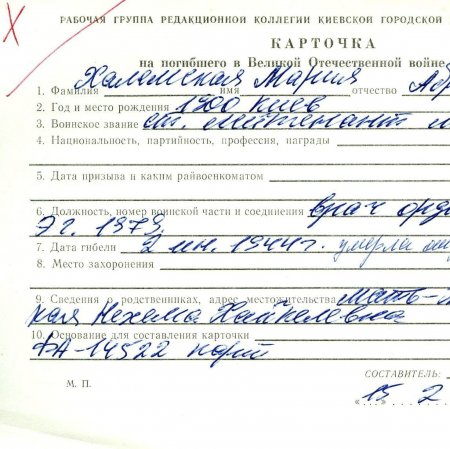 РАБОЧАЯ ГРУППА РЕДАКЦИОННОЙ КОЛЛЕГИИ КИЕВСКОЙ ГОРОДСКОЙ
КАРТОЧКА
на погибшего в Великой Отечественной войне
1. Фамилия Халамская имя Мария отчество Абр
2. Год и место рождения 1900 Киев
3. Воинское звание ст. лейтенант м
4. Национальность, партийность, профессия, награды
5. Дата призыва и каким райвоенкоматом
6. Должность, номер воинской части и соединения врач орд
ЭГ. 1973,
7. Дата гибели 2 ин. 1944 г. умерла
8. Место захоронения
9. Сведения о родственниках, адрес местожительства мать-
кая Нехама Хайкелевна
10. Основание для составления карточки
ФА-14522
М. П.
СОСТАВИТЕЛЬ:
"15" 2